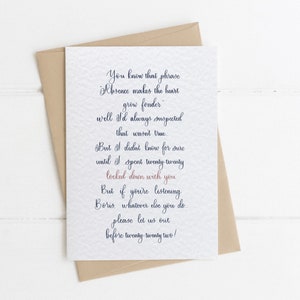 You know that phrase
Absence makes the heart
grow fonder
well I'd always suspected
that wasnt true
But I didnt know for sure
until I spent twenty-twenty
locked down with you
But if you're listening
Boris, whatever else you do
please let us out
before twenty-twenty two!